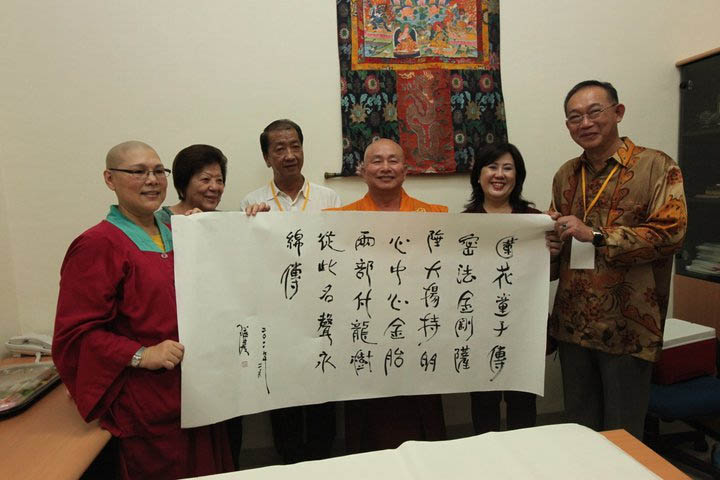 蓮花童子傳
密法金剛薩
埵大揚持的
心中心金胎
兩部付龍樹
從此名聲永
綿傳